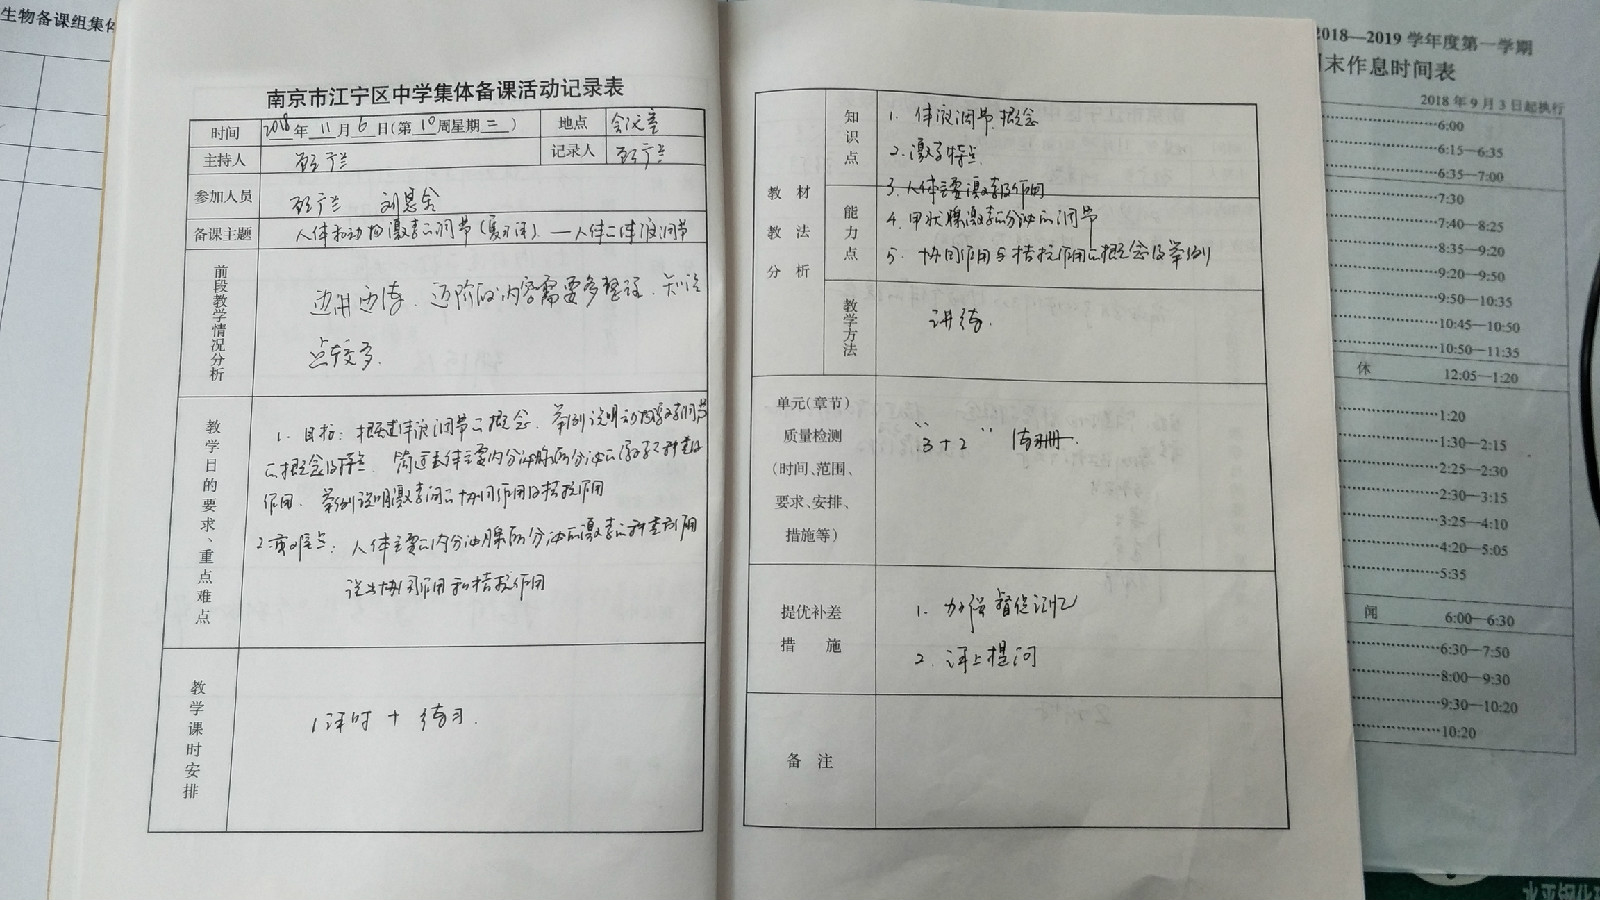 生物备课组集体
南京市江宁区中学集体备课活动记录表
时间 2018年 11月 6日(第 10周星期 二) 地点 会议室
主持人 记录人
参加人员
备课主题 人体和动物激素的调节(复习课)—人体的体液调节
前段教学情况分析
边讲边练,
内容需要多整理,知识
点较多.
教学目的要求、重点难点
1. 目标:概述体液调节的概念.举例说明动物激素调节
的概念及特点.简述人体主要内分泌腺所分泌的激素的种类及
作用.举例说明激素间的协同作用及拮抗作用
2.重难点:人体主要的内分泌腺所分泌的激素的种类和作用
说出协同作用和拮抗作用
教学课时安排
1课时 + 练习.
教材教法分析
知识点
1. 体液调节概念
2. 激素特点
3. 人体主要激素及作用
能力点
4. 甲状腺激素的分泌的调节
5. 协同作用与拮抗作用的概念及举例
教学方法
讲练.
单元(章节)
质量检测
(时间、范围、
要求、安排、
措施等)
“3+2”
提优补差
措 施
1. 加强督促记忆
2. 课上提问
备 注
2018—2019 学年度第一学期
末作息时间表
2018 年 9 月 3 日起执行
6:00
6:15—6:35
6:35—7:00
7:30
7:40—8:25
8:35—9:20
9:20—9:50
9:50—10:35
10:45—10:50
10:50—11:35
休 12:05—1:20
1:20
1:30—2:15
2:25—2:30
2:30—3:15
3:25—4:10
4:20—5:05
5:35
闻 6:00—6:30
6:30—7:50
8:00—9:30
9:30—10:20
10:20